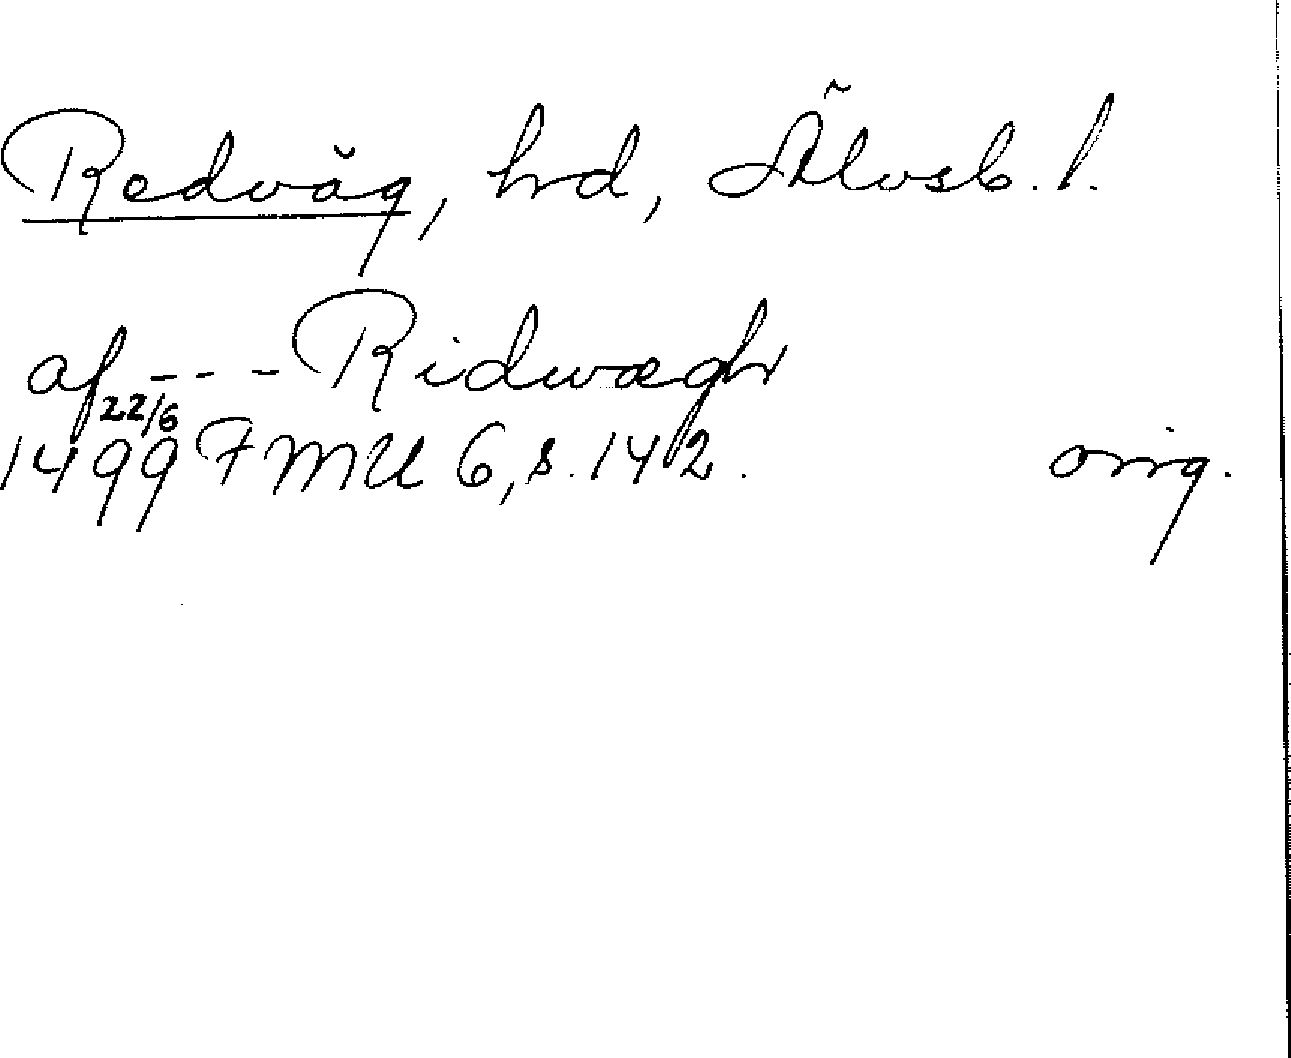 Redväg, hrd, Älvsb. l.
af - - - Ridwægh
22/6
1499 FMU 6, s. 142. orig.